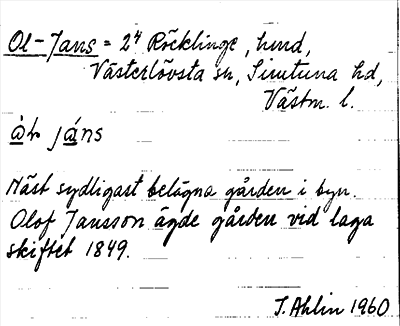 Ol-Jans = 2⁴ Röcklinge, hmd,
Västerlövsta sn, Simtuna hd,
Västm. l.
jáns
Näst sydligast belägna gården i byn.
Olof Jansson ägde gården vid laga
skiftet 1849.
J. Ahlin 1960